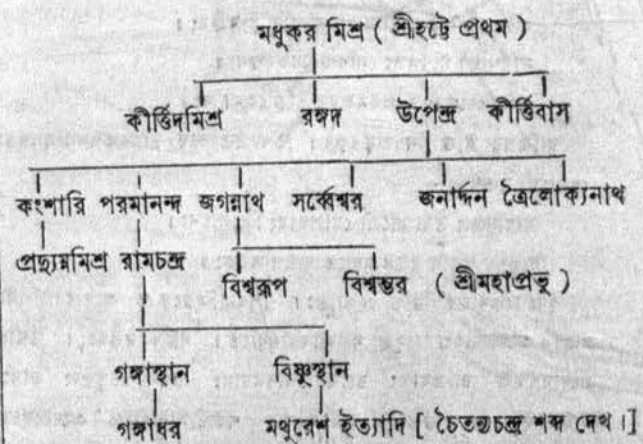 মধুকর মিশ্র ( শ্রীহট্টে প্রথম )
কীর্ত্তিদমিশ্র রঙ্গদ উপেন্দ্র কীর্ত্তিবাস
কংশারি পরমানন্দ জগন্নাথ সর্ব্বেশ্বর জনার্দ্দন ত্রৈলোক্যনাথ
প্রদ্যুম্নমিশ্র রামচন্দ্র বিশ্বরূপ বিশ্বম্ভর ( শ্রীমহাপ্রভু )
গঙ্গাস্থান বিষ্ণুস্থান
গঙ্গাধর মথুরেশ ইত্যাদি [ চৈতন্যচন্দ্র শব্দ দেখ। ]